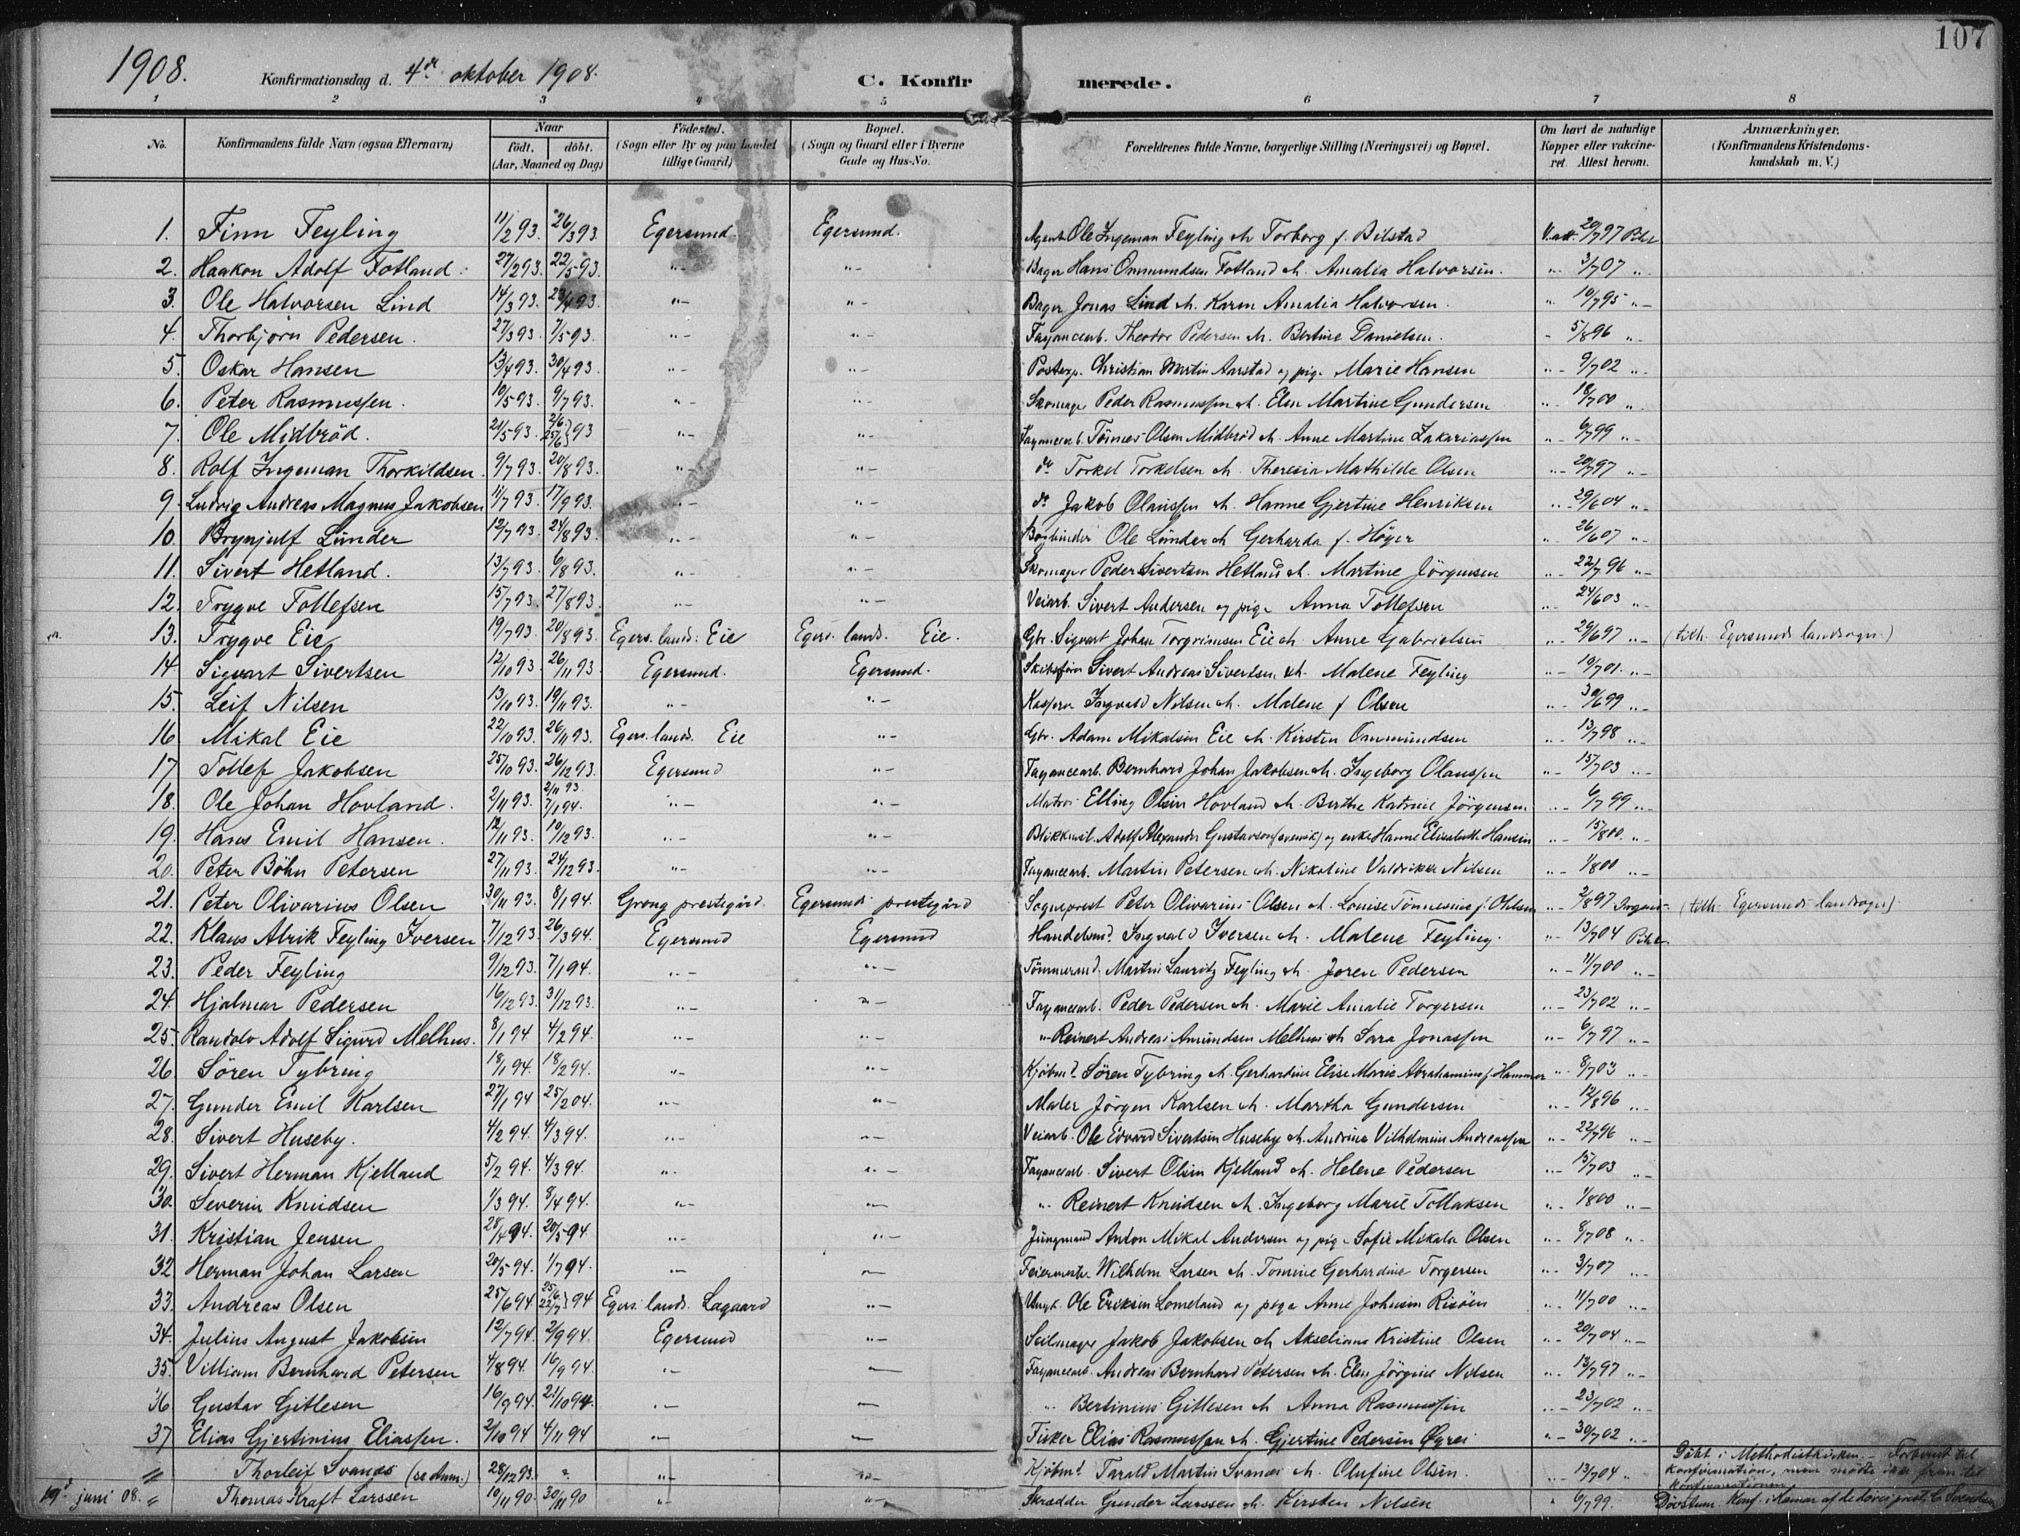 107
1908. Konfirmationsdag d. 4de oktober 1908. C. Konfir merede.
1 2 3 4 5 6 7 8
No. Konfirmandens fulde Navn (ogsaa Efternavn) Naar født, døbt. (Aar, Maaned og Dag) Fødested. (Sogn eller By og paa Landet tillige Gaard) Bopæl. (Sogn og Gaard eller i Byerne Gade og Hus-No. Forældrenes fulde Navne, borgerlige Stilling (Næringsvei) og Bopæl. Om havt de naturlige Kopper eller vaccineret. Attest herom. Anmærkninger. (Konfirmandens Kristendomskundskab m. V.)
1. Finn Feyling 11/2 93. 26/3 93. Egersund Egersund. Agent Ole Ingeman Feyling & Torborg f. Bilstad V. att. 20/7 97 Pihl
2. Haakon Adolf Fotland. 27/2 93. 22/5 93. "- "- Bager Hans Ommundsen Fotland & Amalia Halvorsen. "- 3/7 07 "-
3. Ole Halvorsen Lind 14/3 93. 23/4 93. "- "- Bager Jonas Lind & Karen Amalia Halvorsen. "- 10/7 95 "-
4. Thorbjørn Pedersen. 27/3 93. 7/5 93. "- "- Fayancearb. Theodor Pedersen & Bertine Danielsen. "- 5/8 96 "-
5. Oskar Hansen 13/4 93. 30/4 93. "- "- Postexp. Christian Martin Aarstad og pige Marie Hansen "- 9/7 02 "-
6. Peter Rasmussen. 10/5 93. 9/7 93. "- "- Skomager Peder Rasmussen & Elen Martine Gundersen "- 18/7 00 "-
7. Ole Midbrød. 21/5 93. 2/6 25/6 } 93 "- "- Fayancearb. Tønnes Olsen Midbrød & Anne Martine Zakariassen "- 6/7 99 "-
8. Rolf Ingeman Thorkildsen. 9/7 93. 20/8 93. "- "- do Torkel Torkelsen & Theresia Mathilde Olsen "- 20/7 97 "-
9. Ludvig Andreas Magnus Jakobsen 11/7 93. 17/9 93. "- "- do Jakob Olaussen & Hanne Gjertine Henriksen "- 29/6 04 "-
10. Brynjulf Lunder 12/7 93. 24/8 93. "- "- Bogbinder Ole Lunder & Gerharda f. Høyer "- 26/6 07 "-
11. Sivert Hetland. 13/7 93. 6/8 93. "- "- Skomager Peder Sivertsen Hetland & Martine Jørgensen "- 22/7 96 "-
12. Trygve Tollefsen 15/7 93. 27/8 93. "- "- Veiarb. Sivert Andersen og pige Anna Tollefsen "- 24/6 03 "-
13. Trygve Eie 19/7 93. 20/8 93. Egers. lands. Eie Egers. lands. Eie. Gbr. Sigvart Johan Torgrimsen Eie & Anne Gabrielsen "- 29/6 97 "- (tilh. Egersunds landsogn.)
14. Sigvart Sivertsen 12/10 93. 26/11 93. Egersund. Egersund. Skibsfører Sivert Andreas Sivertsen & Malene Feyling "- 10/7 01. "-
15. Leif Nilsen 13/10 93. 19/11 93. "- "- Ingvald Nilsen & Malene f Olsen "- 30/6 99 "-
16. Mikal Eie 22/10 93. 26/11 93. Egers. lands. Eie "- Gbr. Adam Mikalsen Eie & Kirsten Ommundsen "- 13/7 98 "-
17. Tollef Jakobsen 25/10 93. 26/12 93. Egersund "- Fayancearb. Bernhard Johan Jakobsen & Ingeborg Olaussen "- 15/7 03 "-
18. Ole Johan Hovland. 2/11 93. 2/11 93 7/1 94. "- "- Matros Elling Olsen Hovland & Berthe Katrine Jørgensen "- 6/7 99 "-
19. Hans Emil Hansen. 12/11 93. 10/12 93. "- "- Blikkensl. Adolf Alexander Gustavson (svensk) og enke Hanne Elisabeth Hansen "- 15/8 00. "-
20. Peter Bøhn Petersen 27/11 93. 24/12 93. "- "- Fayancearb. Martin Petersen & Nikoline Valdrikke Nilsen "- 1/8 00 "-
21. Peter Olivarius Olsen 30/11 93. 8/1 94. Grong prestegård Egersund prestegård Sogneprest Peter Olivarius Olsen & Louise Tønnesine f. Ohlsen "- 2/8 97 (tilh. Egersunds landsogn).
22. Klaus Alrik Feyling Iversen 7/12 93. 26/3 94. Egersund Egersund Handelsmd. Ingvald Iversen & Malene Feyling. "- 13/7 04 Pihl
23. Peder Feyling 9/12 93. 7/1 94. "- "- Tømmermd. Martin Lauritz Feyling & Joren Pedersen "- 11/7 00 "-
24. Hjalmar Pedersen 16/12 93. 31/12 93. "- "- Fayancearb. Peder Pedersen & Marie Amalie Torgersen "- 23/7 02 "-
25. Randolv Adolf Sigurd Melhus. 8/1 94 4/2 94. "- "- "- Reinert Andreas Amundsen Melhus & Sara Jonassen "- 6/7 97 "-
26. Søren Tybring 18/1 94. 18/2 94. "- "- Kjøbmd. Søren Tybring & Gerhardine Elise Marie Abrahamine f. Hammer "- 8/7 03 "-
27. Gunder Emil Karlsen 27/1 94 25/2 04. "- "- Maler Jørgen Karlsen & Martha Gundersen "- 12/8 96 "-
28. Sivert Huseby. 4/2 94. 4/3 94. "- "- Veiarb. Ole Edvard Sivertsen Huseby & Andrine Vilhelmine Andreassen "- 22/7 96 "-
29. Sivert Herman Kjelland 5/2 94. 4/3 94. "- "- Fayancearb. Sivert Olsen Kjelland & Helene Pedersen "- 15/7 03 "-
30. Severin Knudsen 1/3 94. 8/4 94. "- "- "- Reinert Knudsen & Ingeborg Marie Tollaksen "- 1/8 00 "-
31. Kristian Jensen 28/4 94. 20/5 94. "- "- Jungmand Anton Mikal Andersen og pige Sofie Mikala Olsen "- 8/7 08 "-
32. Herman Johan Larsen 20/5 94. 1/7 94. "- "- Feiermester Wilhelm Larsen & Tomine Gerhardine Torgersen "- 3/7 07 "-
33. Andreas Olsen 25/6 94. 25/6 22/7 } 94 Egers. lands. Lagaard "- Ungk. Ole Eriksen Lomeland og pige Anne Johnsen Risøen "- 11/7 00 "-
34. Julius August Jakobsen 12/7 94. 2/9 94. Egersund "- Seilmager Jakob Jakobsen & Akseliane Kristine Olsen "- 20/7 04 "-
35. Villiam Bernhard Petersen 4/8 94. 16/9 94. "- "- Fayancearb. Andreas Bernhard Petersen & Elen Jørgine Nilsen "- 13/7 97 "-
36 Gustav Gitlesen 16/9 94. 21/10 94. "- "- "- Bertinius Gitlesen & Anna Rasmussen "- 23/7 02 "-
37. Elias Gjertinius Eliassen. 2/10 94 4/11 94 "- "- Fisker Elias Rasmussen & Gjertine Pedersen Øgrei "- 30/7 02 "-
" Thorleif Svanæs (se Anm.) 28/12 93. "- "- Kjøbmd. Tarald Martin Svanæs & Olufine Olsen. "- 13/7 04 "- Døbt i Methodistkirken. - Forberedt til konfirmation, men mødte ikke frem til konfirmationen.
19de juni 08. " Thomas Kraft Larssen 10/11 90. 30/11 90 "- "- Skrædder Gunder Larssen & Kirsten Nilsen " 6/7 99. Døvstum. Konf. i Hamar af de døves prest, C. Svendsen